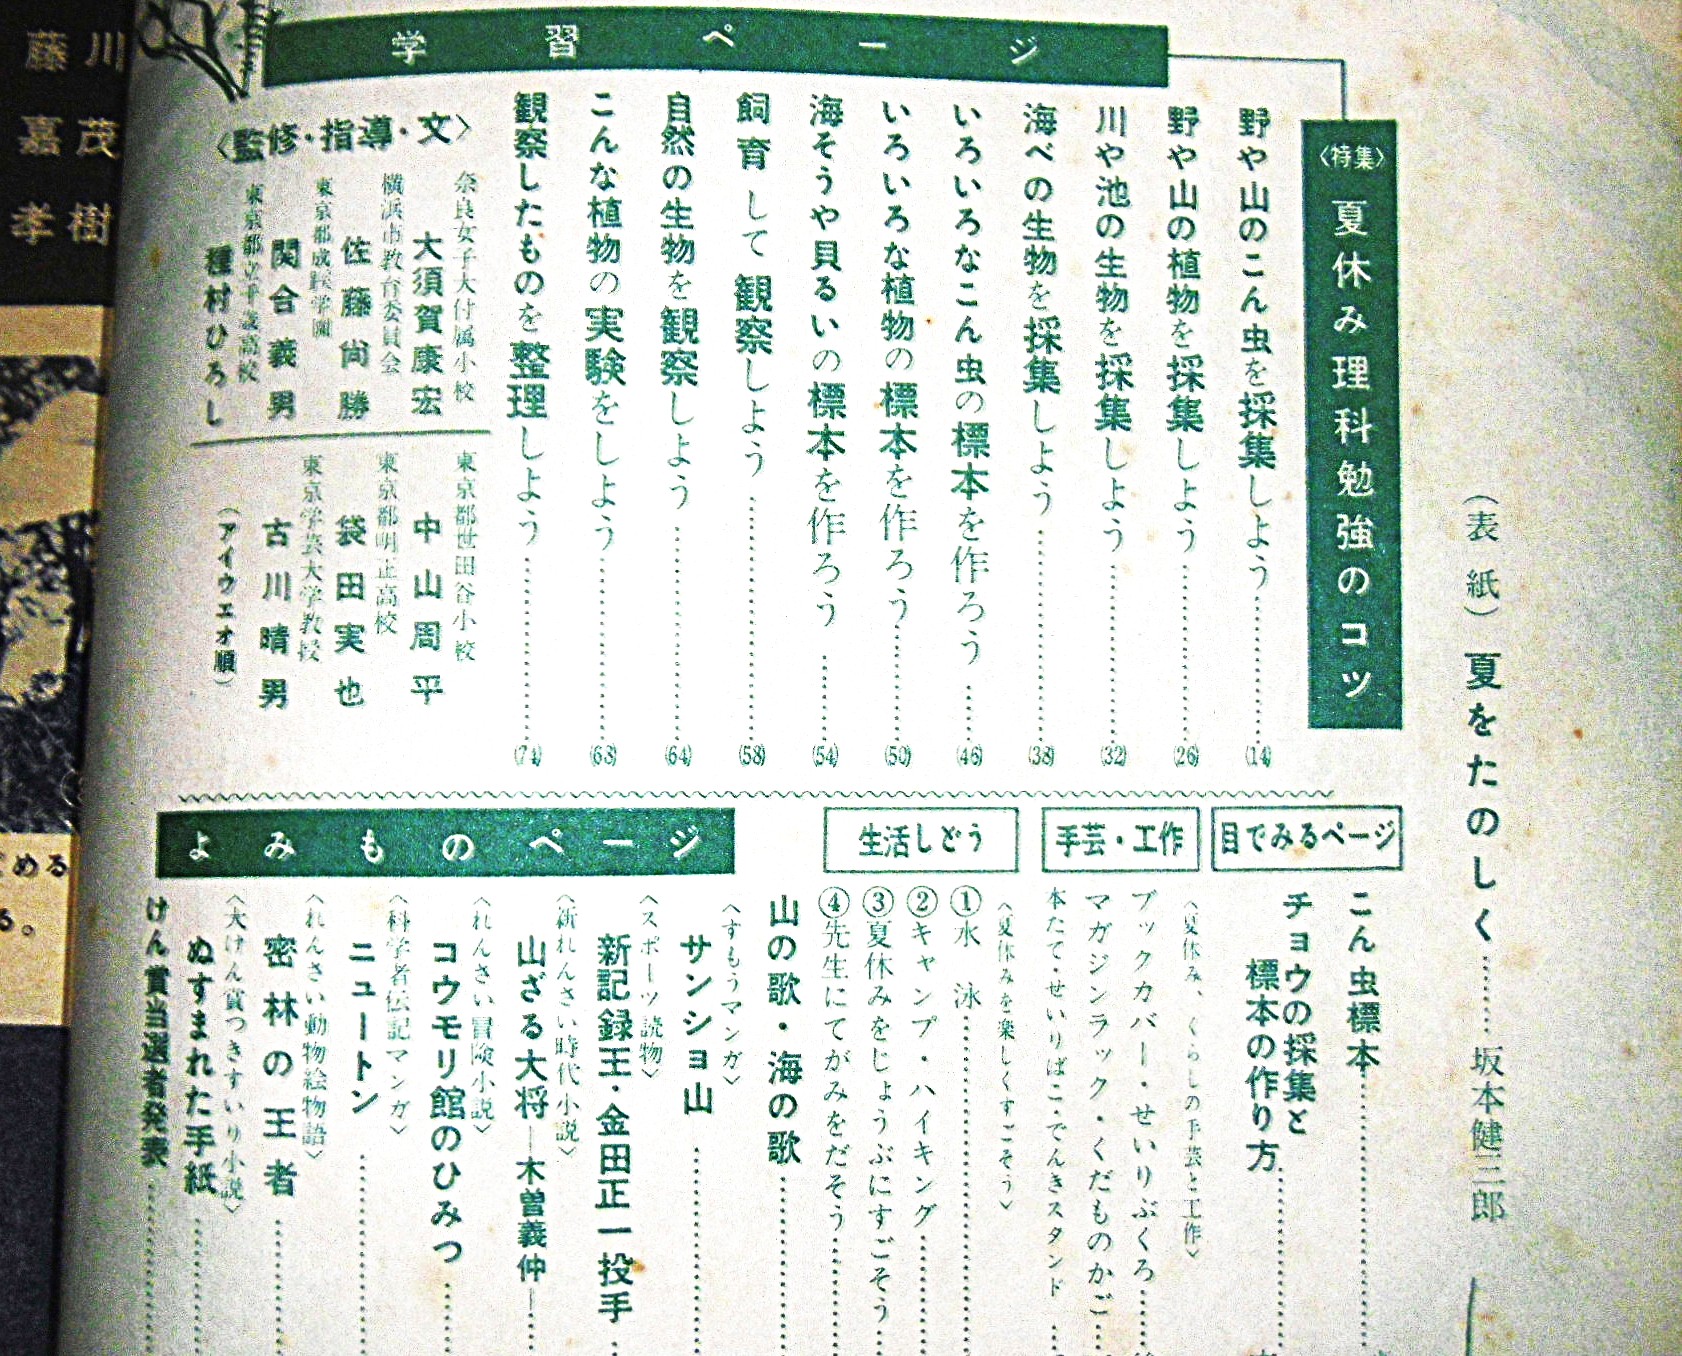 (表紙) 夏をたのしく………坂本健三郎
学習ページ
〈特集〉夏休み理科勉強のコツ
野や山のこん虫を採集しよう…………(14)
野や山の植物を採集しよう…………(26)
川や池の生物を採集しよう…………(32)
海べの生物を採集しよう…………(38)
いろいろなこん虫の標本を作ろう……(46)
いろいろな植物の標本を作ろう………(50)
海そうや貝るいの標本を作ろう………(54)
飼育して観察しよう…………(58)
自然の生物を観察しよう…………(64)
こんな植物の実験をしよう…………(68)
観察したものを整理しよう…………(74)
〈監修・指導・文〉
奈良女子大付属小校
大須賀康宏
横浜市教育委員会
佐藤尚勝
東京都成蹊学園
関合義男
種村ひろし
東京都世田谷小校
中山周平
東京都明正高校
袋田実也
東京学芸大学教授
古川晴男
(アイウエオ順)
目でみるページ
こん虫標本…………
チョウの採集と
標本の作り方…………
手芸・工作
〈夏休み、くらしの手芸と工作〉
ブックカバー・せいりぶくろ……
マガジンラック・くだものかご…
本たて・せいりばこ・でんきスタンド…
生活しどう
〈夏休みを楽しくすごそう〉
①水泳…………
②キャンプ・ハイキング…………
③夏休みをじょうぶにすごそう……
④先生にてがみをだそう…………
よみものページ
山の歌・海の歌…………
〈すもうマンガ〉
サンショ山…………
〈スポーツ読物〉
新記録王・金田正一投手…
〈新れんさい時代小説〉
山ざる大将―木曽義仲―…
〈れんさい冒険小説〉
コウモリ館のひみつ……
〈科学者伝記マンガ〉
ニュートン…………
〈れんさい動物絵物語〉
密林の王者…………
〈大けん賞つきすいり小説〉
ぬすまれた手紙…………
けん賞当選者発表…………
川茂樹
藤嘉孝
める
る。